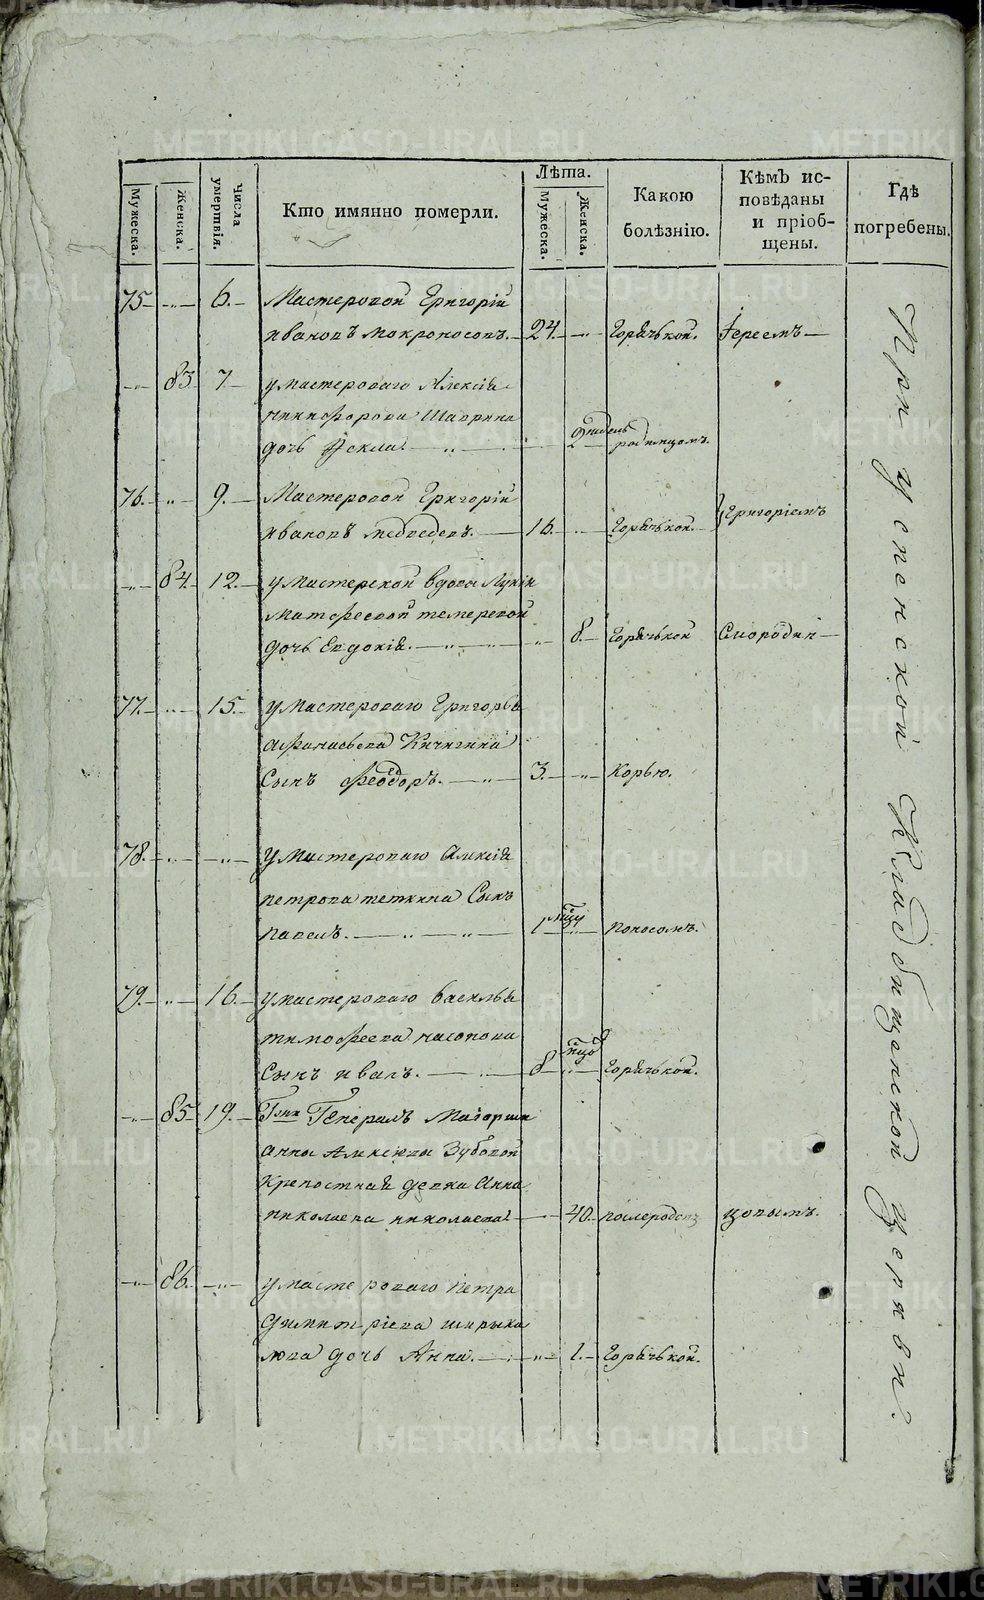 Мужеска.
Женска.
Числа умертвія.
Кто имянно померли.
Лѣта.
Мужеска.
Женска.
Какою
болѣзнію.
Кѣмъ ис-
повѣданы
и пріоб-
щены.
Гдѣ
погребены.
75. 6. Мастеровой Григорій
ивановъ мокроносовъ. 24. Горячькой. Іереемъ
83. 7. у мастероваго Алексія
никифорова Шаврина
дочь Фекла. 2 недель родимцомъ.
76. 9. Мастеровой Григорій
ивановъ медведевъ. 16. Горячькой. Григоріемъ
84. 12. у мастерской вдовы
Матфеевой темеревой
дочь Евдокія. 8. Горячькой Смородин
77. 15. у мастероваго Григорья
афанасьева Кичигина
Сынъ Феодоръ. 3. Корью.
78. у мастероваго Алексія
петрова теткина Сынъ
павелъ. 1 поносомъ.
79. 16. у мастероваго василья
тимофеева насонова
Сынъ иванъ. 8 Горячькой.
85. 19. Гпжи Генералъ Маіорши
анны Алексіевы Зубовой
Крепостная девка Анна
николаева николаева 40. послеродовъ цовымъ.
86. у мастероваго петра
димитріева ширыка
лова дочь Анна. 1. Горячькой.
При успенской Кладбищенской церквѣ.
METRIKI.GASO-URAL.RU